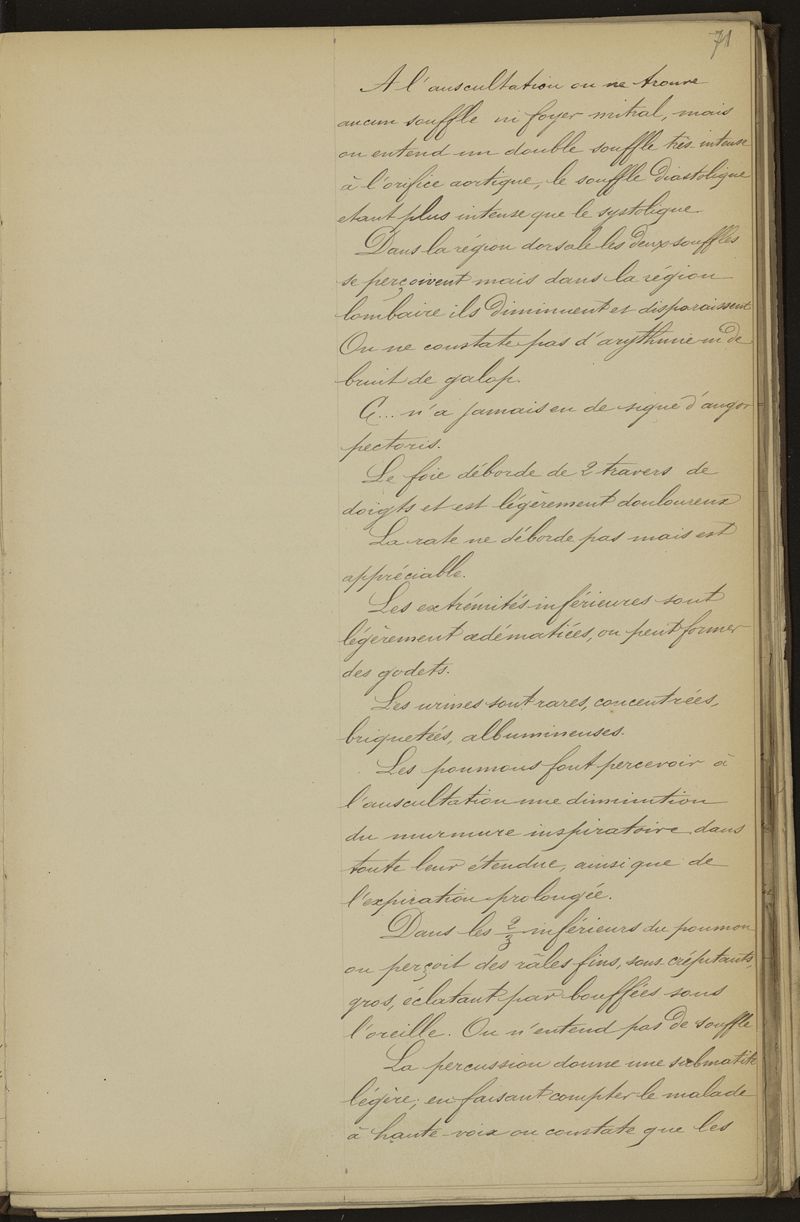 71
A l'auscultation on ne trouve
aucun souffle ni foyer mitral, mais
on entend un double souffle très intense
à l'orifice aortique, le souffle diastolique
etant plus intense que le systolique.
Dans la région dorsale les deux souffles
se perçoivent mais dans la région
lombaire ils diminuent et disparaissent
On ne constate pas d'arythmie ni de
bruit de galop.
C... n'a jamais eu de signe d'angor
pectoris.
Le foie déborde de 2 travers de
doigts et est légèrement douloureux
La rate ne déborde pas mais est
appréciable.
Les extrémités inférieures sont
légèrement œdématiées, on peut former
des godets.
Les urines sont rares, concentrées,
briquetées, albumineuses.
Les poumons font percevoir à
l'auscultation une diminution
du murmure inspiratoire dans
toute leur étendue, ainsi que de
l'expiration prolongée.
Dans les 2/3 inférieurs du poumon
on perçoit des râles fins, sous crépitants,
gros, éclatant par bouffées sous
l'oreille. On n'entend pas de souffle
La percussion donne une submatité
légère; en faisant compter le malade
à haute voix on constate que les